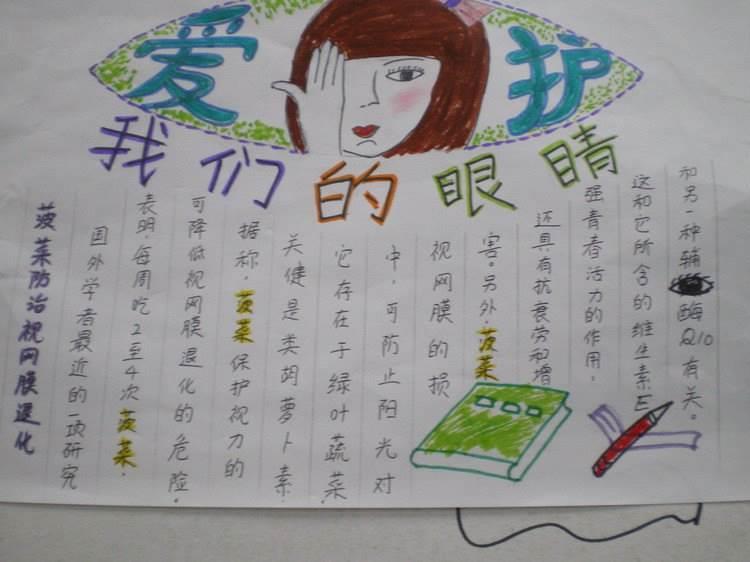 爱护
我们的眼睛
菠菜防治视网膜退化
国外学者最近的一项研究
表明,每周吃2至4次菠菜,
可降低视网膜退化的危险。
据称,菠菜保护视力的
关健是类胡萝卜素,
它存在于绿叶蔬菜
中,可防止阳光对
视网膜的损
害。另外,菠菜
还具有抗衰劳和增
强青春活力的作用。
这和它所含的维生素E
和另一种辅酶Q10有关。